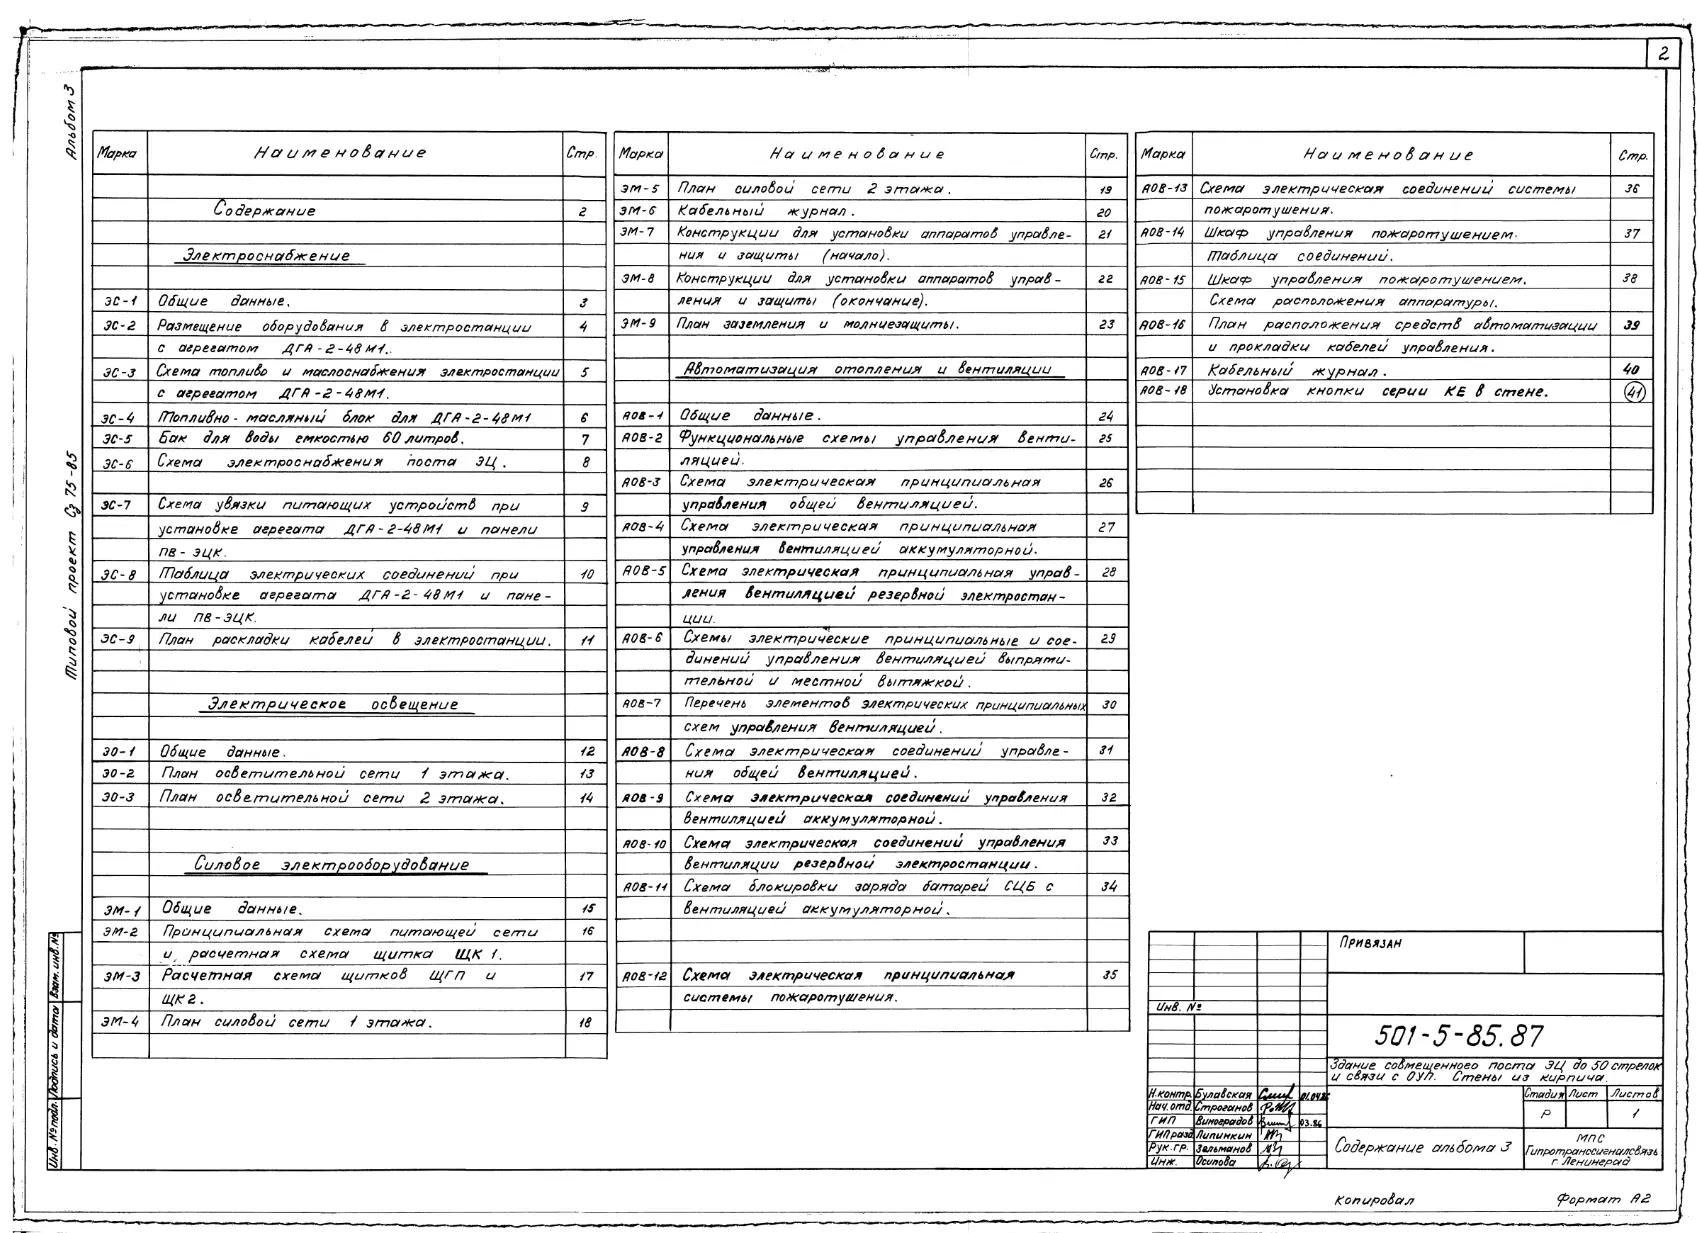 2
Альбом 3
Типовой проект Сз 75-85
Марка Наименование Стр.
Содержание 2
Электроснабжение
ЭС-1 Общие данные. 3
ЭС-2 Размещение оборудования в электростанции 4
с агрегатом ДГА-2-48М1.
ЭС-3 Схема топливо и маслоснабжения электростанции 5
с агрегатом ДГА-2-48М1.
ЭС-4 Топливно-масляный блок для ДГА-2-48М1 6
ЭС-5 Бак для воды емкостью 60 литров. 7
ЭС-6 Схема электроснабжения поста ЭЦ. 8
ЭС-7 Схема увязки питающих устройств при 9
установке агрегата ДГА-2-48М1 и панели
ПВ-ЭЦК.
ЭС-8 Таблица электрических соединений при 10
установке агрегата ДГА-2-48М1 и пане-
ли ПВ-ЭЦК.
ЭС-9 План раскладки кабелей в электростанции. 11
Электрическое освещение
ЭО-1 Общие данные. 12
ЭО-2 План осветительной сети 1 этажа. 13
ЭО-3 План осветительной сети 2 этажа. 14
Силовое электрооборудование
ЭМ-1 Общие данные. 15
ЭМ-2 Принципиальная схема питающей сети 16
и расчетная схема щитка ЩК 1.
ЭМ-3 Расчетная схема щитков ЩГП и 17
ЩК2.
ЭМ-4 План силовой сети 1 этажа. 18
Марка Наименование Стр.
ЭМ-5 План силовой сети 2 этажа. 19
ЭМ-6 Кабельный журнал. 20
ЭМ-7 Конструкции для установки аппаратов управле- 21
ния и защиты (начало).
ЭМ-8 Конструкции для установки аппаратов управ- 22
ления и защиты (окончание).
ЭМ-9 План заземления и молниезащиты. 23
Автоматизация отопления и вентиляции
АОВ-1 Общие данные. 24
АОВ-2 Функциональные схемы управления венти- 25
ляцией.
АОВ-3 Схема электрическая принципиальная 26
управления общей вентиляцией.
АОВ-4 Схема электрическая принципиальная 27
управления вентиляцией аккумуляторной.
АОВ-5 Схема электрическая принципиальная управ- 28
ления вентиляцией резервной электростан-
ции.
АОВ-6 Схемы электрические принципиальные и сое- 29
динений управления вентиляцией выпрями-
тельной и местной вытяжкой.
АОВ-7 Перечень элементов электрических принципиальных 30
схем управления вентиляцией.
АОВ-8 Схема электрическая соединений управле- 31
ния общей вентиляцией.
АОВ-9 Схема электрическая соединений управления 32
вентиляцией аккумуляторной.
АОВ-10 Схема электрическая соединений управления 33
вентиляции резервной электростанции.
АОВ-11 Схема блокировки заряда батарей СЦБ с 34
вентиляцией аккумуляторной.
АОВ-12 Схема электрическая принципиальная 35
системы пожаротушения.
Марка Наименование Стр.
АОВ-13 Схема электрическая соединений системы 36
пожаротушения.
АОВ-14 Шкаф управления пожаротушением. 37
Таблица соединений.
АОВ-15 Шкаф управления пожаротушением. 38
Схема расположения аппаратуры.
АОВ-16 План расположения средств автоматизации 39
и прокладки кабелей управления.
АОВ-17 Кабельный журнал. 40
АОВ-18 Установка кнопки серии КЕ в стене. 41
Инв. № подл. Подпись и дата Взам. инв. №
Привязан
Инв. №
501-5-85.87
Здание совмещенного поста ЭЦ до 50 стрелок
и связи с ОУП. Стены из кирпича.
Н.контр. Булавская 01.04.86
Нач.отд. Строганов
ГИП Виноградов 03.86
ГИП разд. Липинкин
Рук.гр. Зельманов
Инж. Осипова
Стадия Лист Листов
Р 1
Содержание альбома 3
МПС
Гипротранссигналсвязь
г. Ленинград
Копировал Формат А2